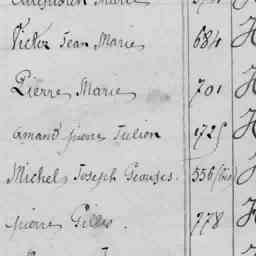 Victor Jean Marie 684 H
Pierre Marie 701 H
Amand pierre Julien 1725 H
Michel Joseph Georges. 556 (bis) H
pierre Gilles. 778 H